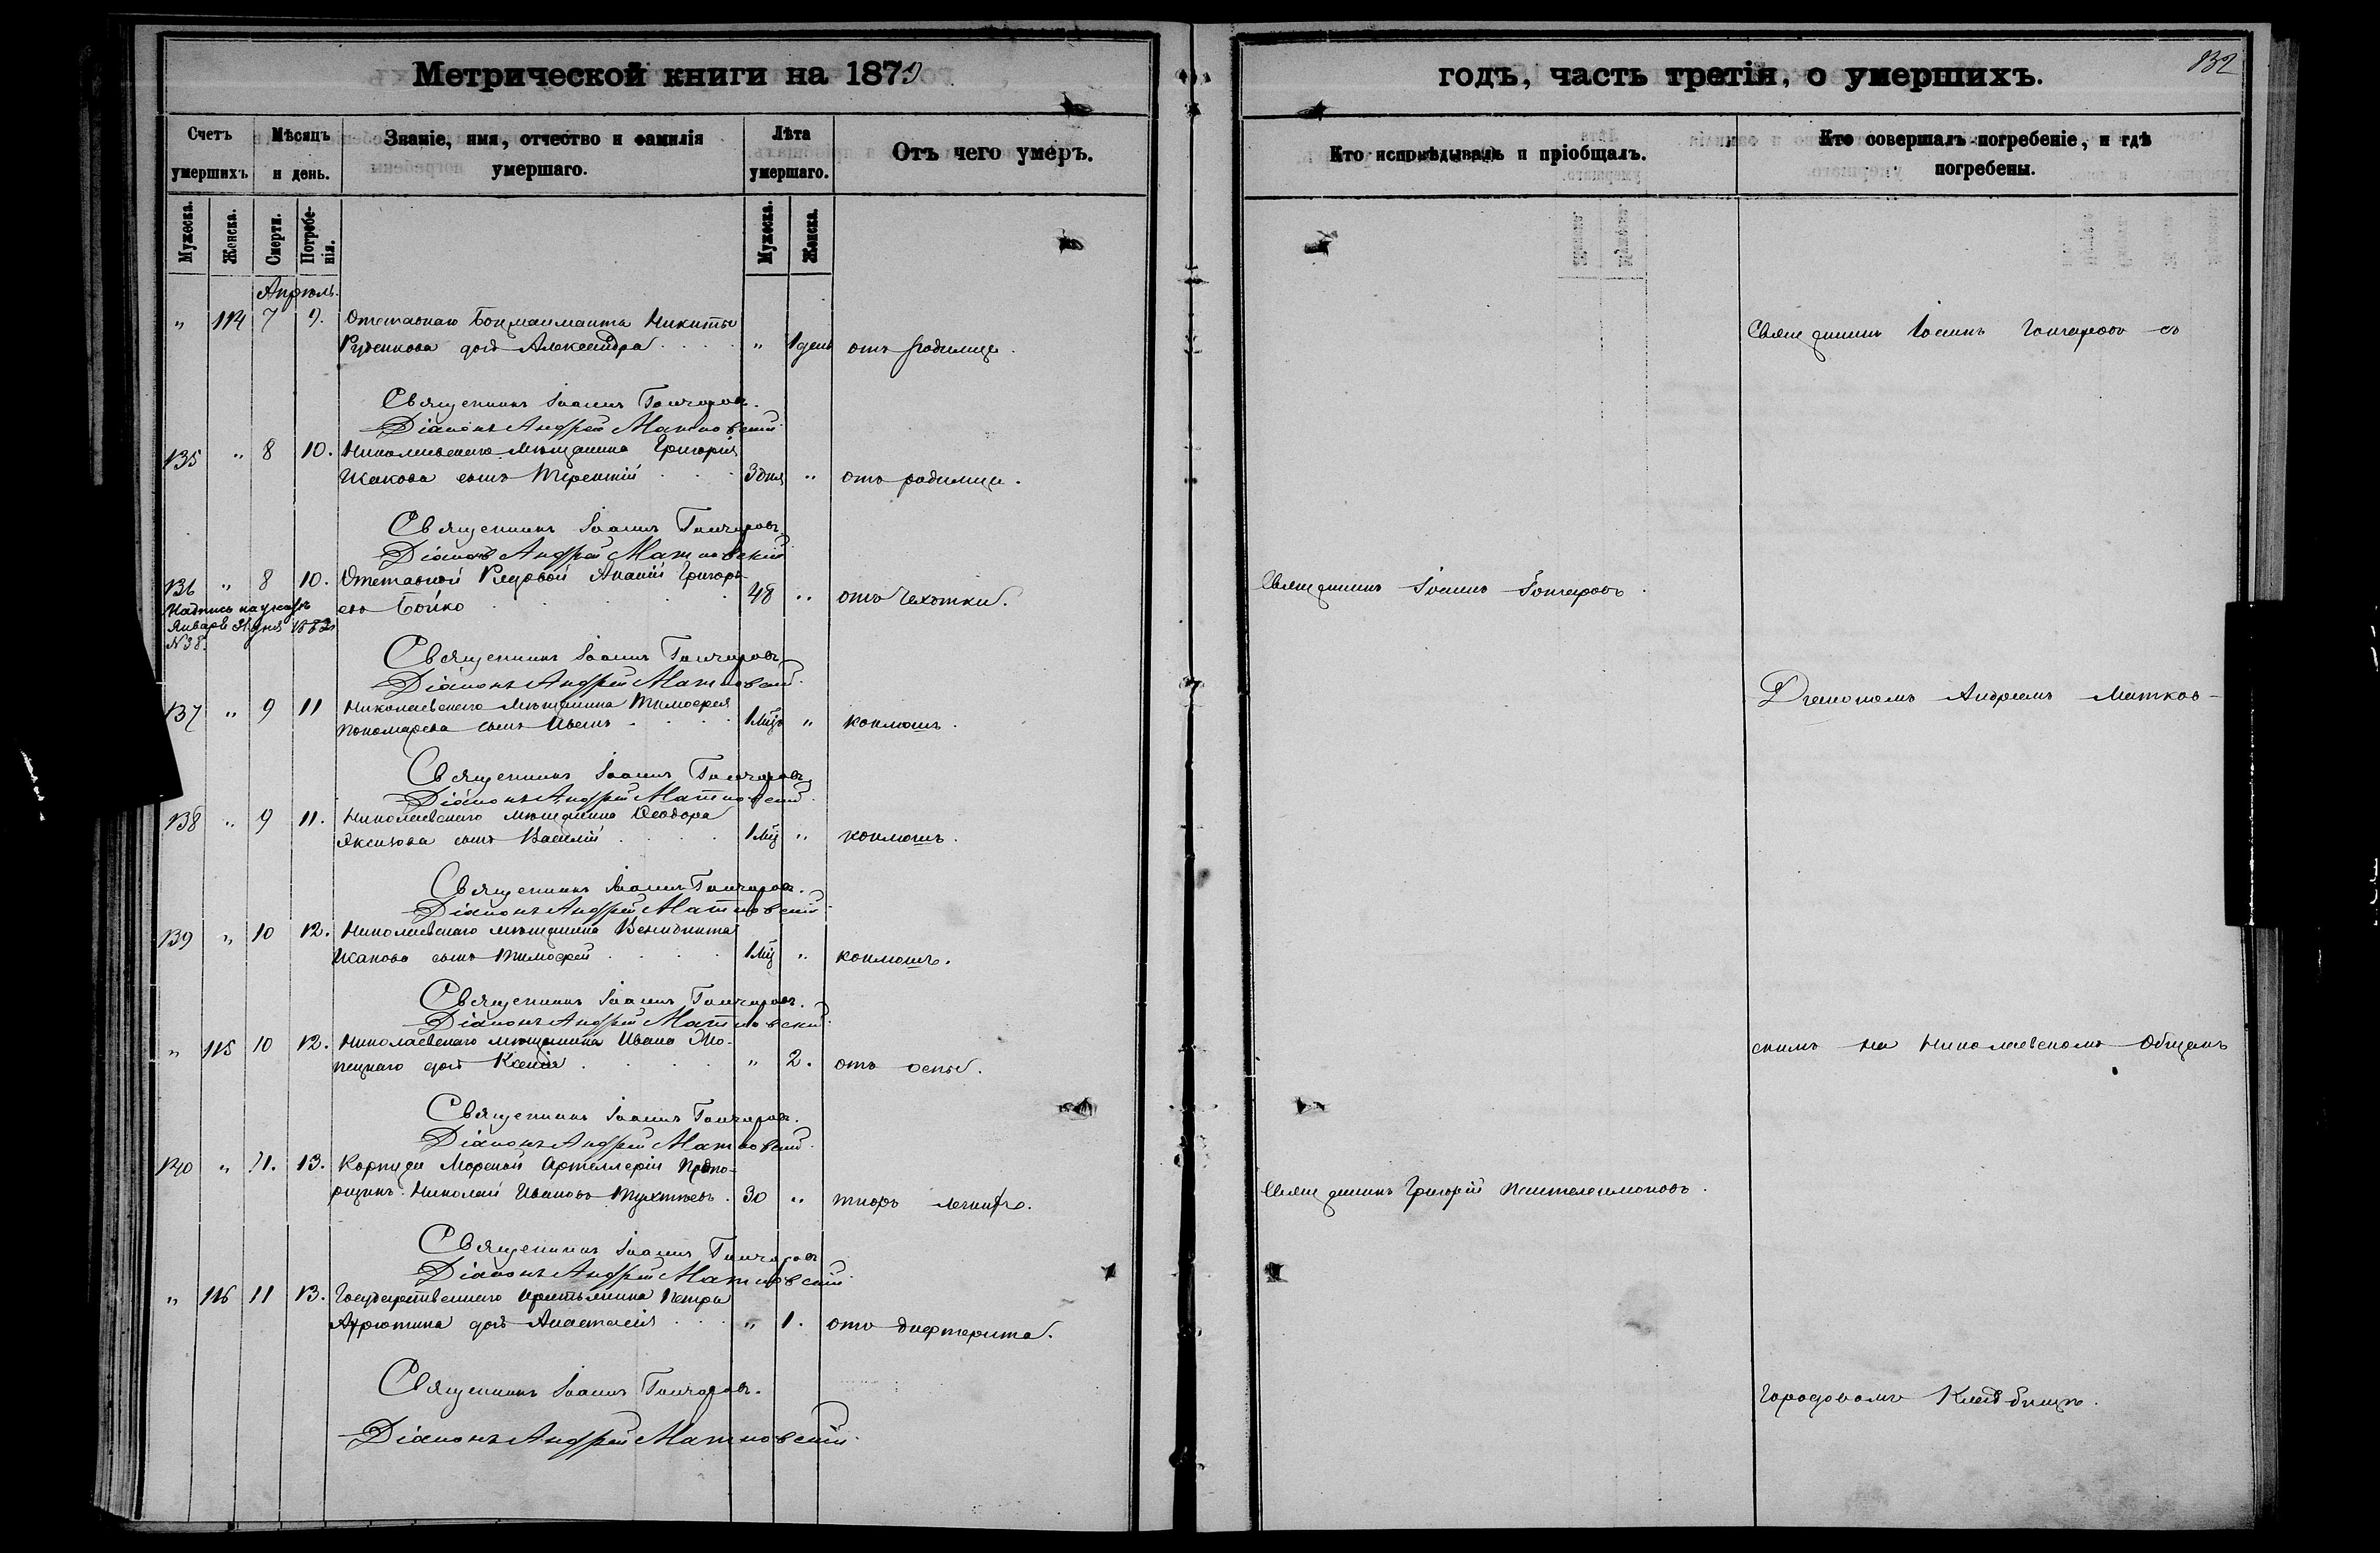 Метрической книги на 1879
годъ, часть третія, о умершихъ.
132
Счетъ умершихъ
Мѣсяцъ и день.
Званіе, имя, отчество и фамилія умершаго.
Лѣта умершаго.
Отъ чего умеръ.
Кто исповѣдывалъ и пріобщалъ.
Кто совершалъ погребеніе, и гдѣ погребены.
Мужеска.
Женска.
Смерти.
Погребенія.
Мужеска.
Женска.
Апрѣль.
" 114 7 9. Отставнаго Боцманмата Никиты
Руденкова дочь Александра " 1 день отъ родимца.
Священникъ Іоаннъ Гончаровъ съ
Священникъ Іоаннъ Гончаровъ.
Діаконъ Андрей Матковскій
135 " 8 10. Николаевскаго мѣщанина Григорія
Исакова сынъ Терентій 3 дня " отъ родимца.
Священникъ Іоаннъ Гончаровъ
Діаконъ Андрей Матковскій
136 " 8 10. Отставной Рядовой Ананій Григорь-
евъ Бойко 48 " отъ чахотки.
Священникъ Іоаннъ Гончаровъ.
Января 31 дня 1882
№38.
Священникъ Іоаннъ Гончаровъ
Діаконъ Андрей Матковскій
137 " 9 11 Николаевскаго мѣщанина Тимофея
Пономарева сынъ Иванъ 1 мѣц " коклюшъ.
Діакономъ Андреемъ Матков-
Священникъ Іоаннъ Гончаровъ
Діаконъ Андрей Матковскій
138 " 9 11. Николаевскаго мѣщанина Ѳеодора
сынъ Василій 1 мѣц " коклюшъ.
Священникъ Іоаннъ Гончаровъ.
Діаконъ Андрей Матковскій
139 " 10 12. Николаевскаго мѣщанина Венидикта
Исакова сынъ Тимофей 1 мѣц " коклюшъ.
Священникъ Іоаннъ Гончаровъ.
Діаконъ Андрей Матковскій
" 115 10 12. Николаевскаго мѣщанина Ивана
дочь Ксенія " 2. отъ оспы.
скимъ на Николаевскомъ Общемъ
Священникъ Іоаннъ Гончаровъ.
Діаконъ Андрей Матковскій
140 " 11. 13. Корпуса Морской Артиллеріи Прапо-
рщикъ Николай Ивановъ Тухтѣевъ. 30 "
Священникъ Григорій Пантелеимоновъ.
Священникъ Іоаннъ Гончаровъ
Діаконъ Андрей Матковскій
" 116 11 13. Государственнаго крестьянина Петра
дочь Анастасія " 1. отъ дифтерита.
Священникъ Іоаннъ Гончаровъ.
Городовомъ Кладбищѣ.
Діаконъ Андрей Матковскій